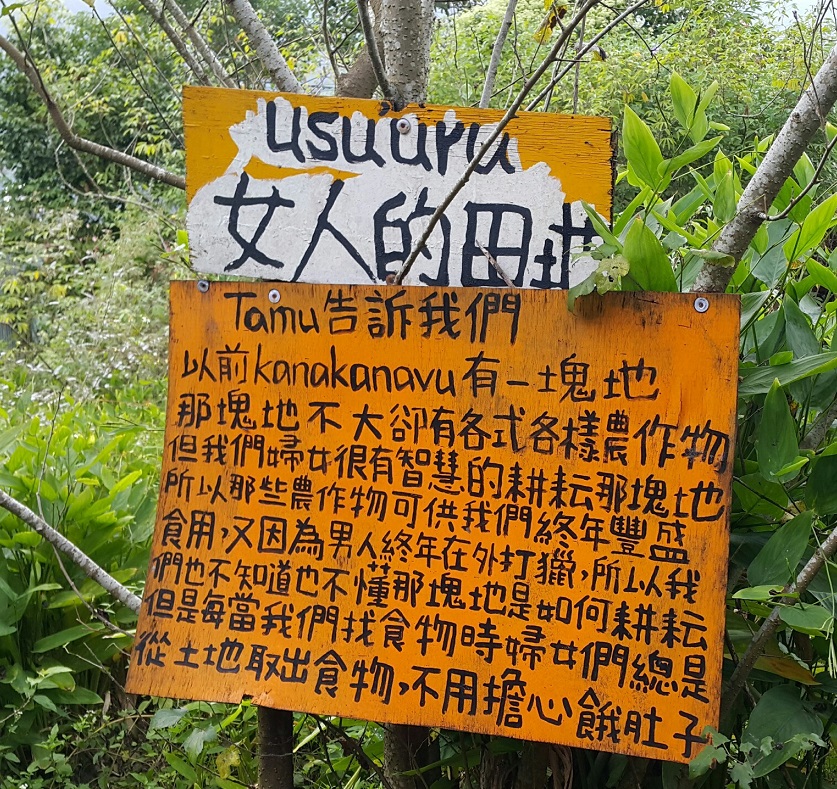 usu'uru
女人的田地
Tamu告訴我們
以前kanakanavu有一塊地
那塊地不大卻有各式各樣農作物
但我們婦女很有智慧的耕耘那塊地
所以那些農作物可供我們終年豐盛
食用,又因為男人終年在外打獵,所以我
們也不知道也不懂那塊地是如何耕耘
但是每當我們找食物時婦女們總是
從土地取出食物,不用擔心餓肚子